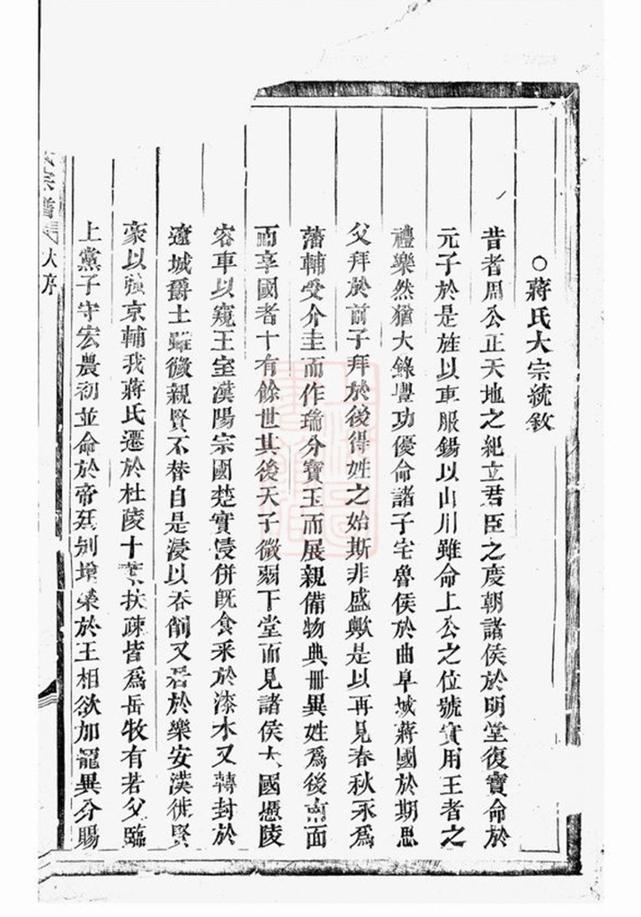 ○蔣氏大宗統敘
昔者周公正天地之紀立君臣之度朝諸侯於明堂復寶命於
元子於是旌以車服錫以山川雖命上公之位號實用王者之
禮樂然猶大錄豐功優命諸子宅魯侯於曲阜城蔣國於期思
父拜於前子拜於後得姓之始斯非盛歟是以再見春秋永為
藩輔受介圭而作瑞分寶玉而展親備物典冊異姓為後南面
而享國者十有餘世其後天子微弱下堂而見諸侯大國憑陵
容車以窺王室漢陽宗國楚實侵併旣食釆於漆水又轉封於
遼城爵土雖微親賢不替自是浸以吞削又居於樂安漢徙賢
豪以強京輔我蔣氏遷於杜陵十葉扶疎皆為岳牧有若父臨
上黨子守宏農初並命於帝廷別增榮於王相欲加寵異分賜
氏宗譜 大序